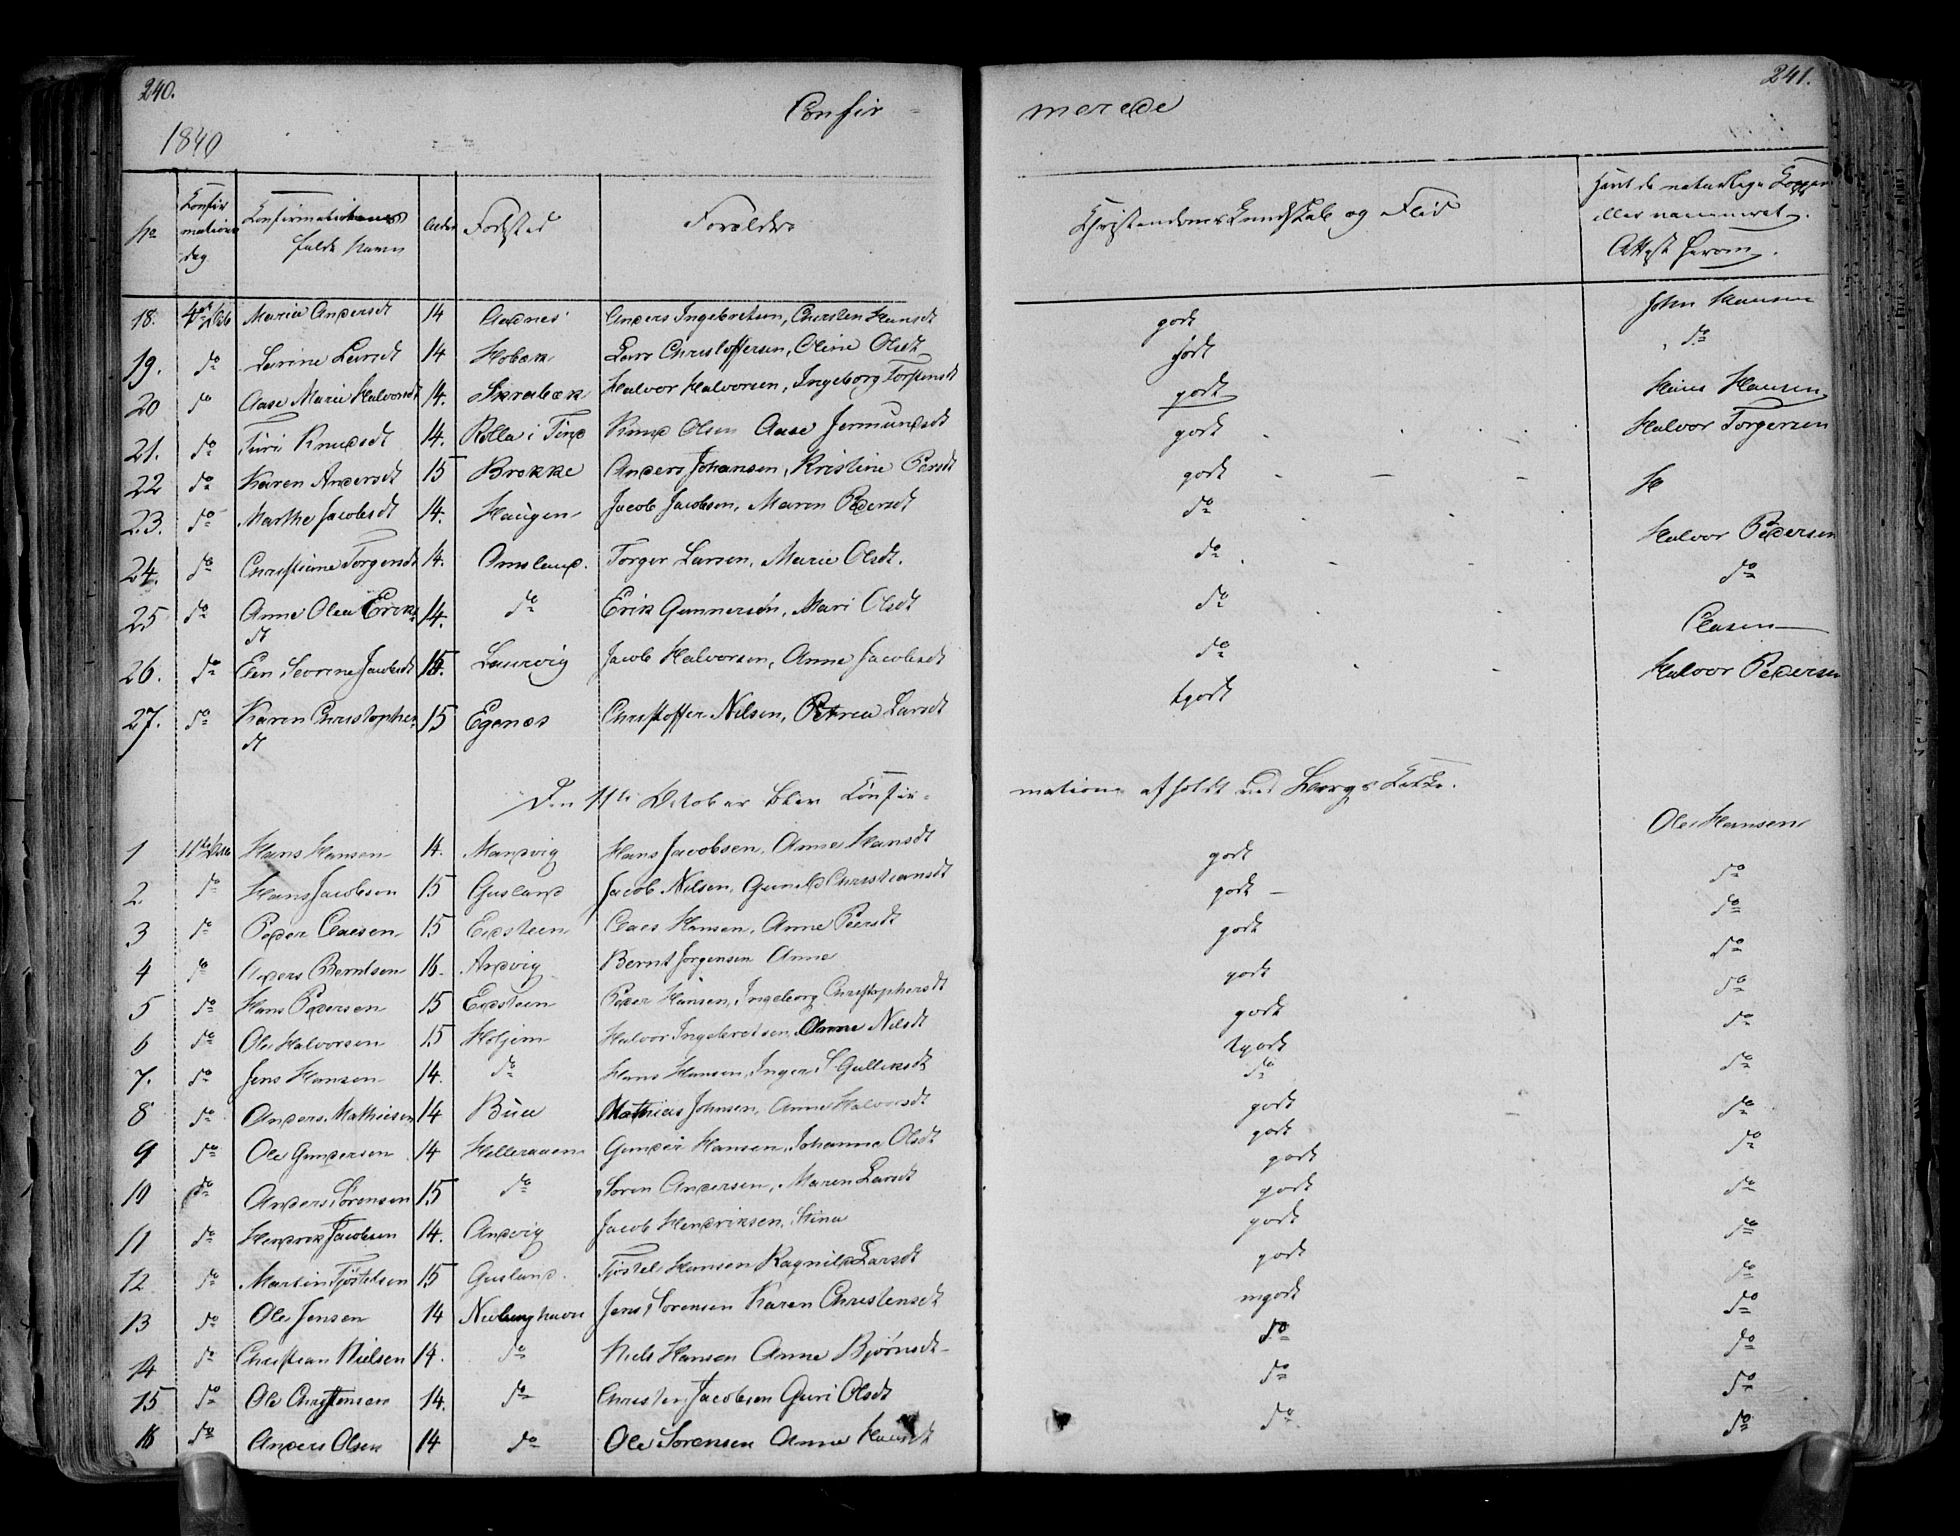 240. 241.
Confir = merede
1840
No Konfirmations dag Konfirmationens fulde Navn Alder Fødested Forældre Christendoms Kundskab og Flid Havt de naturlige Kopper eller vaccineret. Attest herom.
18. 4de Maria Andersdt 14 Aadnes Anders Ingebretsen, Chirsten Hansdt godt John Hansen
19. do Larine Larsdt 14 Hobæk Lars Christoffersen, Oline Olsdt godt do
20 do Aase Marie Halvorsdt 14. Skrabæk Halvor Halvorsen, Ingeborg Torstensdt godt Hans Hansen
21. do Turi Knudsdt 14. Rolla i Tind Knud Olsen Aase Jermundsdt godt Halvor Torgersen
22 do Karen Andersdt 15 Brekke Anders Johansen, Kristine Persdt godt
23. do Marthe Jacobsdt 14. Haugen Jacob Jacobsen, Maren Pedersdt do
24. do Christiane Torgersdt 14. Omsland. Torger Larsen, Marie Olsdt. do Halvor Pedersen
25 do Anne Olea Eriks= 14. do Erik Gunnersøn, Mari Olsdt do do
dt
26. do Elen Severine Jacobsdt 15. Laurvig Jacob Halvorsen, Anne Jacobsdt do Clasen
27. do Karen Christopher= 15 Egenæs Christoffer Nilsen, Petrea Larsdt tgodt Halvor Pedersen
dt
Den 11te October blev Konfir= mation afholdt ved Bergs Kirke.
1 11te Hans Hansen 14. Mandvig Hans Jacobsen, Anne Hansdt godt Ole Hansen
2. do Hans Jacobsen 15 Gusland Jacob Nilsen, Gunild Christiansdt godt do
3 do Peder Claesen 15 Eidsteen Claes Hansen, Anne Peersdt godt do
4 do Anders Berntsen 16. Andvig Bernt Jørgensen Anne godt do
5 do Hans Pedersen 15 Eidsteen Peder Hansen, Ingeborg Christophersdt godt do
6 do Ole Halvorsen 15 Holjem Halvor Ingebretsen, Anne Nilsdt tgodt do
7. do Jens Hansen 14. do Hans Hansen, Inger Gulliksdt do do
8 do Anders Mathiesen 14 Bua Mathias Johnsen, Anne Halvorsdt godt do
9 do Ole Gundersen 14 Helleraaen Gunder Hansen, Johanne Olsdt godt do
10 do Anders Sørensen 15 do Soren Andersen, Maren Larsdt godt do
11 do Hendrik Jacobsen 14. Andvig Jacob Hendriksen, Stina godt do
12 do Martin Tjøstelsen 15 Gusland. Tjøstel Hansen Ragnild Larsdt godt do
13 do Ole Jensen 14 Nevlunghavn Jens Sorensen Karen Christensdt mgodt do
14 do Christian Nielsen 14. do Niels Hansen Anne Bjørnsdt do do
15 do Ole Christensen 14. do Christen Jacobsen Guri Olsdt do do
16 do Anders Olsen 14 do Ole Sorensen Anne Hansdt do do